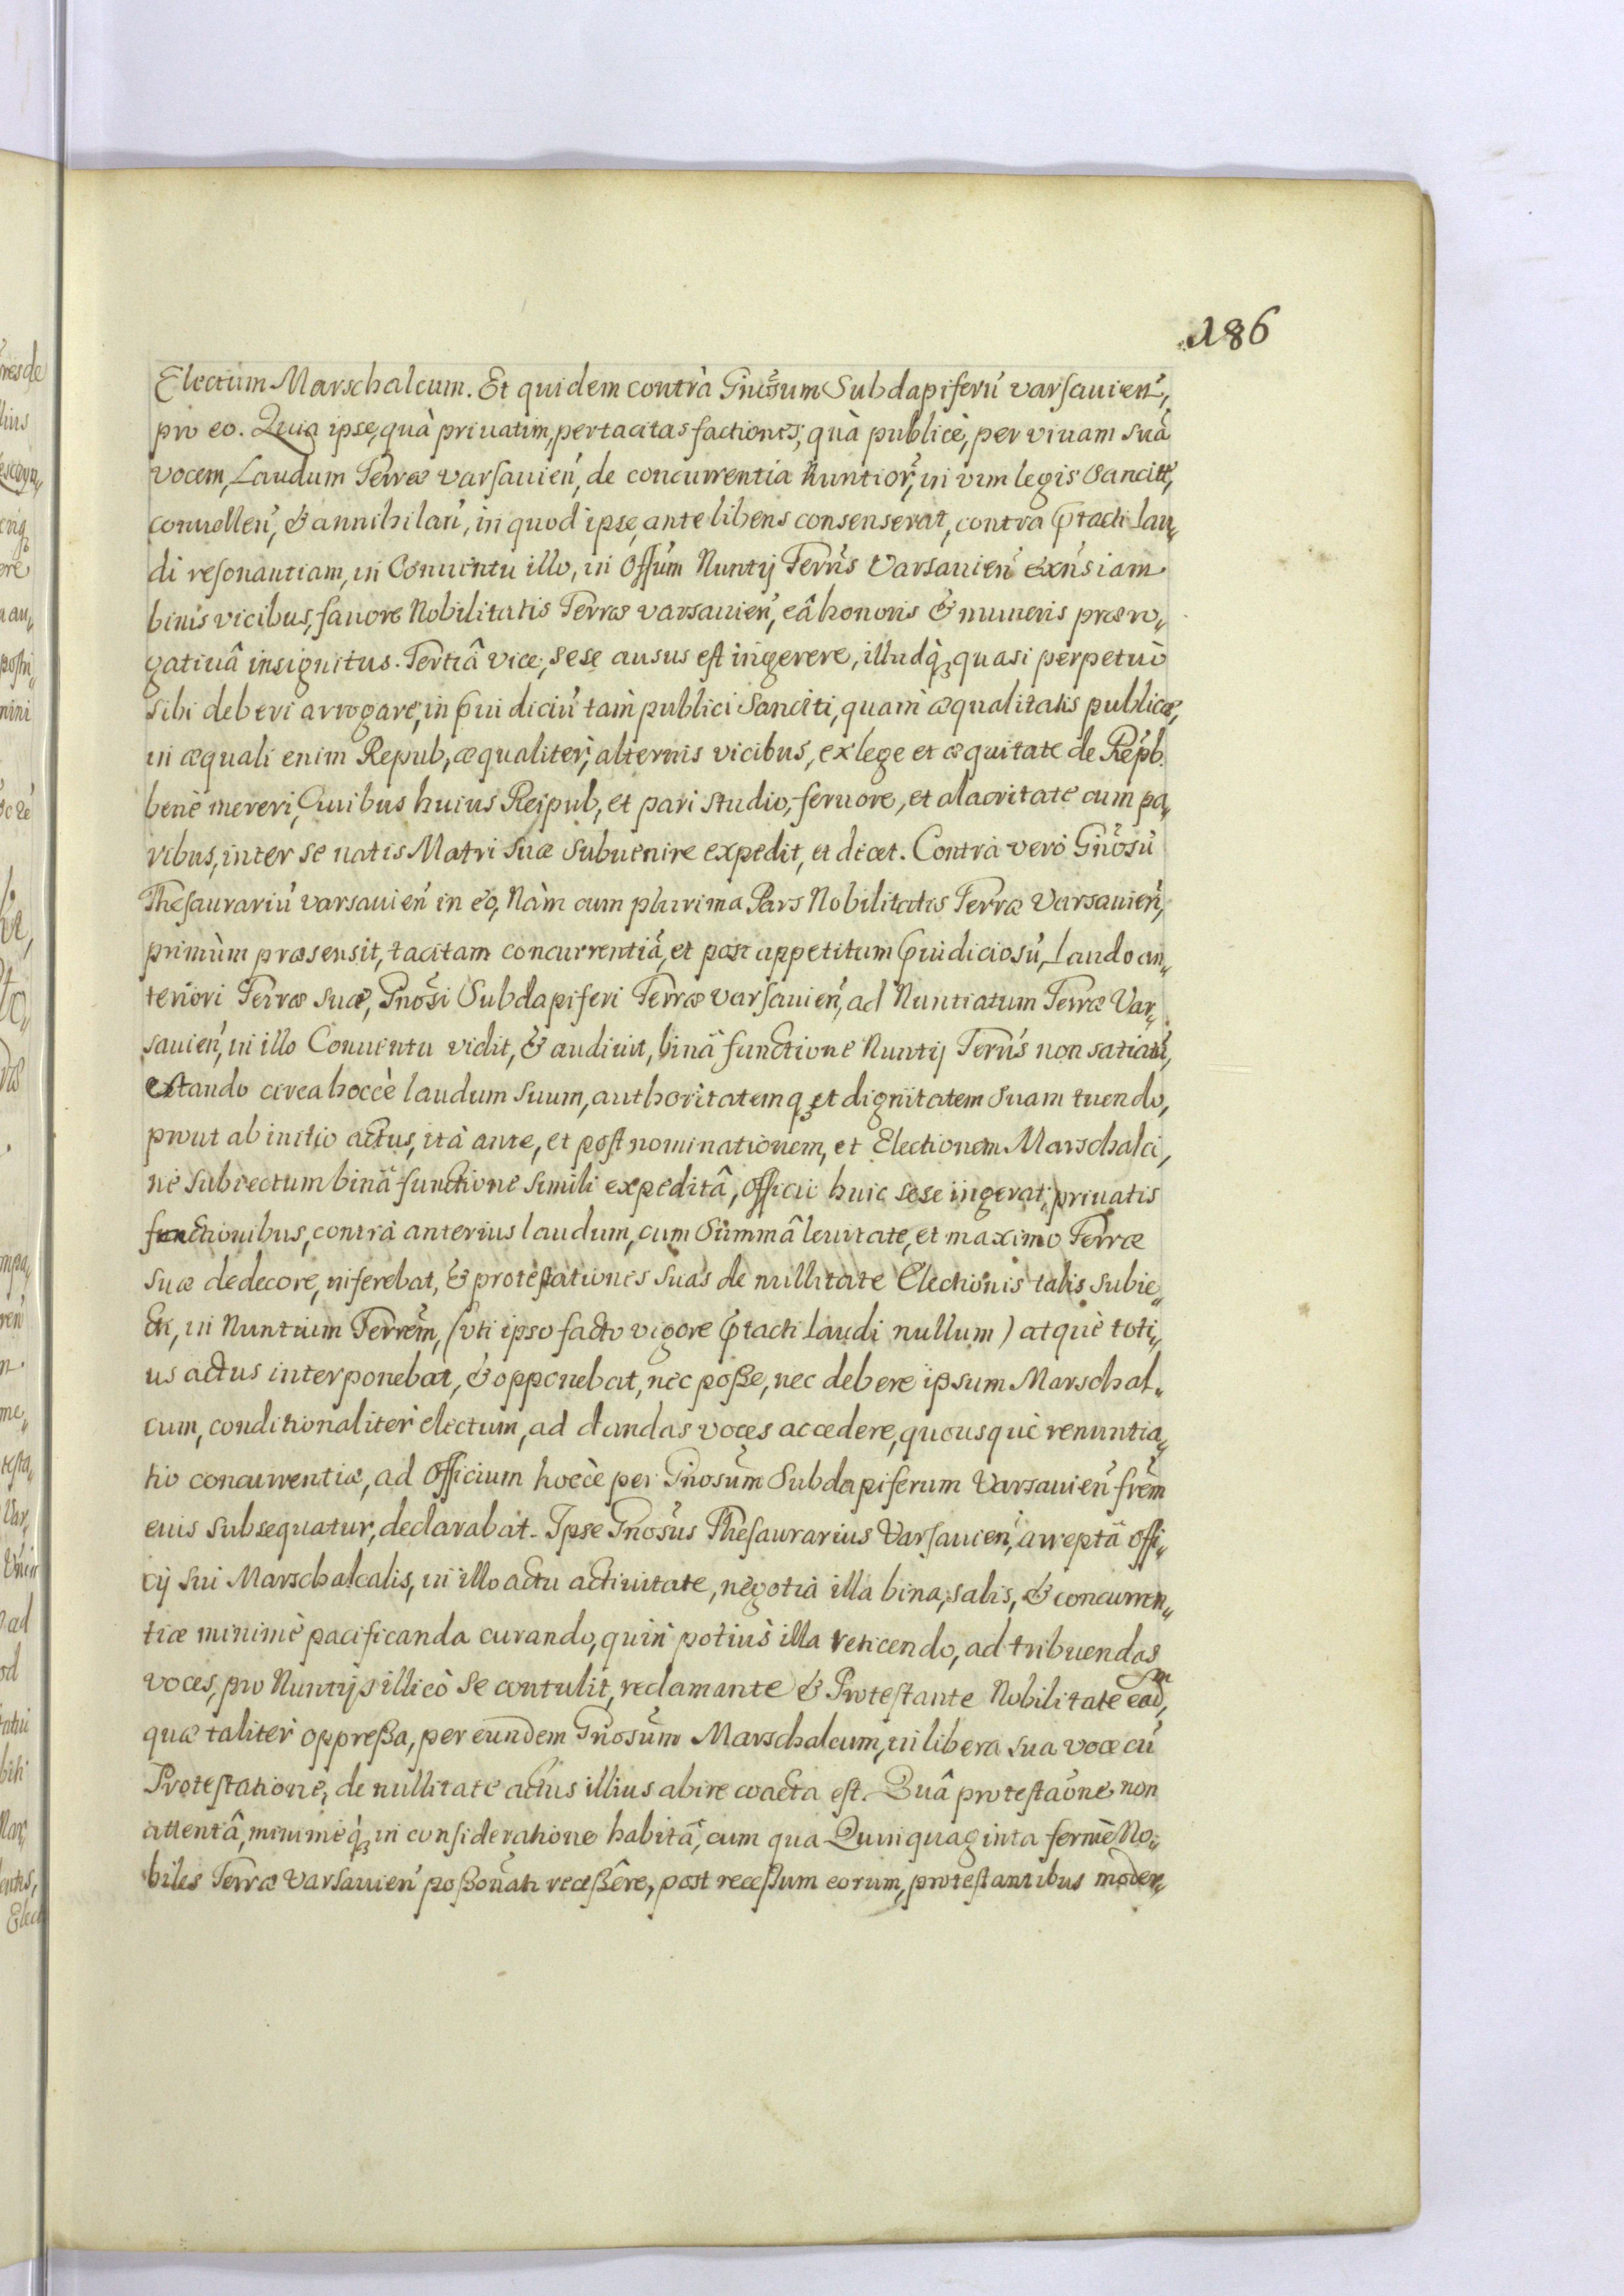 186
Electum Marschalcum. Et quidem contrà Gnosum Subdapiferũ varsauień,
pro eo. Quia ipse, quà priuatim, per tacitas factiones, quà publicè, per viuam suã
vocem, Laudum Terræ varsauień, de concurrentia Nuntior, in vim legis Sancitt,
conuelleń, & annihilań, in quod ipse, ante libens consenserat, contra ptacti lau„
di resonantiam, in Conuentu illo, in Offum Nuntij Terris Varsauień exńs iam
binis vicibus, fauore Nobilitatis Terræ varsauień, eâ honoris & muneris præro„
gatiuâ insignitus. Tertiâ vice, sese ausus est ingerere, illudq, quasi perpetuò
sibi deberi arrogare, in puidiciũ tam publici Sanciti, quam æqualitatis publicæ,
in æquali enim Repub, æqualiter, alternis vicibus, ex lege et æquitate de Repb.
benè mereri, Ciuibus huius Reipub, et pari studio, feruore, et alacritate cum pa„
ribus, inter se natis Matri suæ subuenire expedit, et decet. Contrà verò Gnosũ
Thesaurariũ varsauień in eo, Nàm cum plurima Pars Nobilitatis Terræ Varsauień,
primùm præsensit, tacitam concurrentiã, et post appetitum puidiciosũ, Laudo an„
teriori Terræ suæ, Gnosi Subdapiferi Terræ varsauień, ad Nuntiatum Terræ Var„
sauień, in illo Conuentu vidit, & audiuit, binâ functione Nuntij Terris non satiatũ,
extando circa hoccè laudum suum, authoritatemq et dignitatem suam tuendo,
prout ab initio actus, ità ante, et post nominationem, et Electionem Marschalci,
nè subiectum binâ functione simili expeditâ, officii huic sese ingerat, priuatis
functionibus, contrà anterius laudum, cum summâ leuitate, et maximo Terræ
suæ dedecore, inferebat, & protestationes suas de nullitate Electionis talis subie„
cti, in Nuntium Terrẽm, (vti ipso facto vigore ptacti laudi nullum) atquè toti„
us actus interponebat, & opponebat, nec poße, nec debere ipsum Marschal„
cum, conditionaliter electum, ad dandas voces accedere, quousquè renuntia„
tio concurrentiæ, ad Officium hoccè per Gnosum Subdapiferum Varsauień frem
eius subsequatur, declarabat. Ipse Gnosus Thesaurarius Varsauień, arreptâ offi„
cij sui Marschalcalis, in illo actu actiuitate, negotia illa bina, salis, & concurren„
tiæ minimè pacificanda curando, quin potius illa reticendo, ad tribuendas
voces, pro Nuntijs illicò se contulit, reclamante & Protestante Nobilitate eadm,
quæ taliter oppreßa, per eundem Gnosum Marschalcum, in libera sua voce cũ
Protestatione, de nullitate actus illius abire coacta est. Quâ protestaone non
attentâ, minimeq, in consideratione habitâ, cum qua Quinquaginta fermè No„
biles Terræ Varsauień poßonati receßêre, post receßum eorum, protestantibus moder„